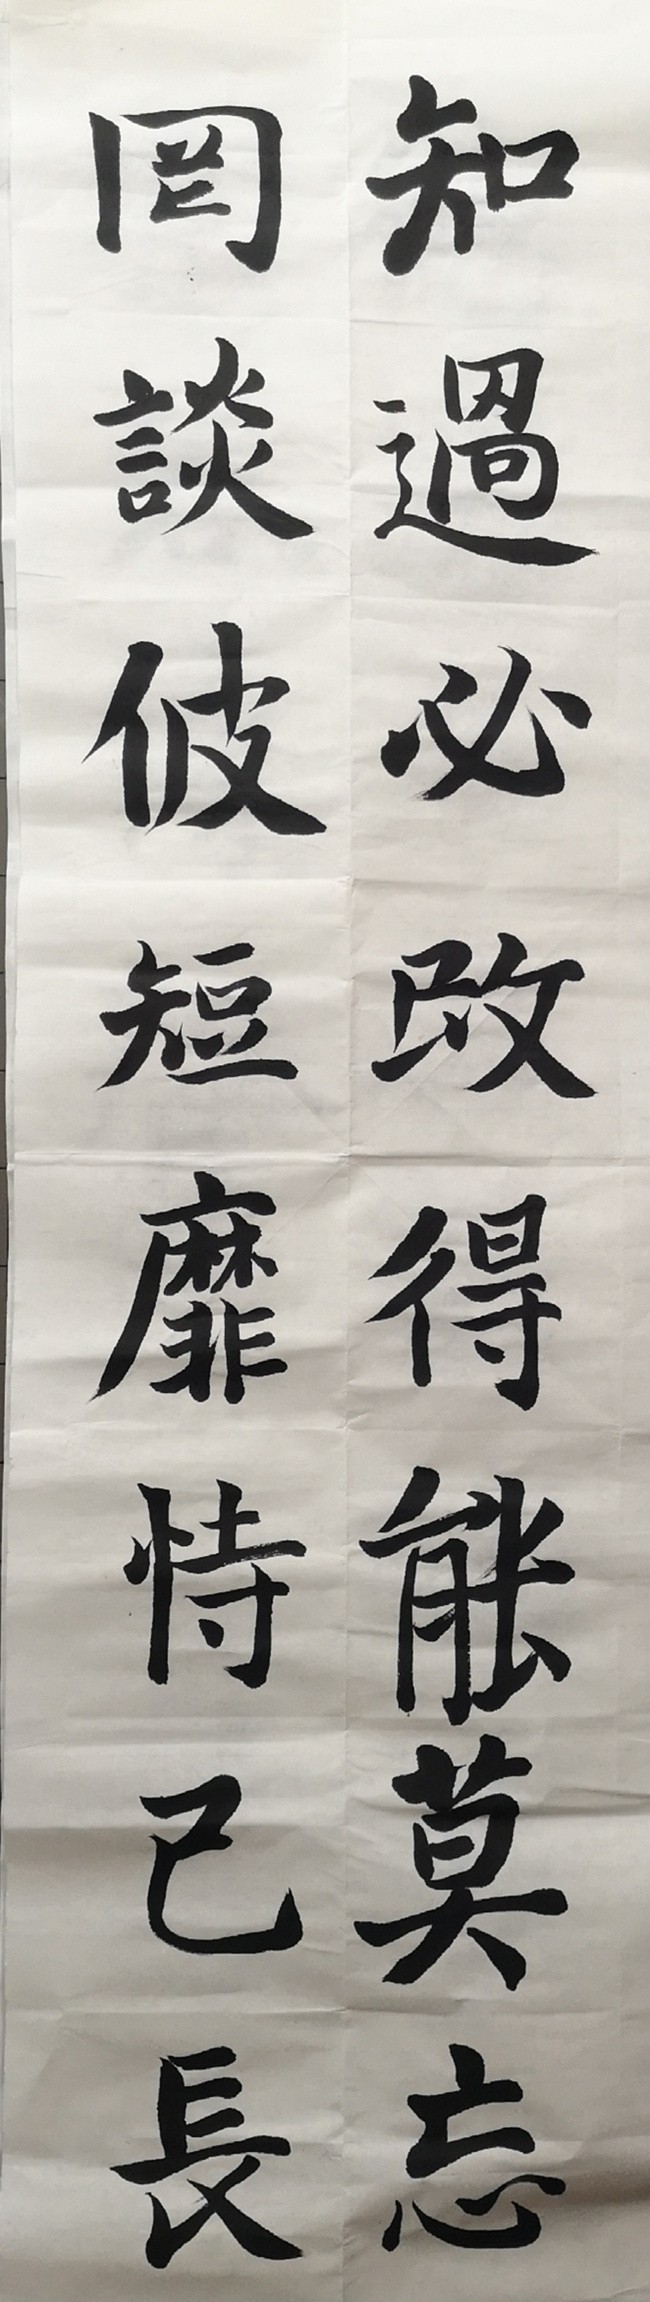 知過必改得能莫忘
罔談彼短靡恃己長